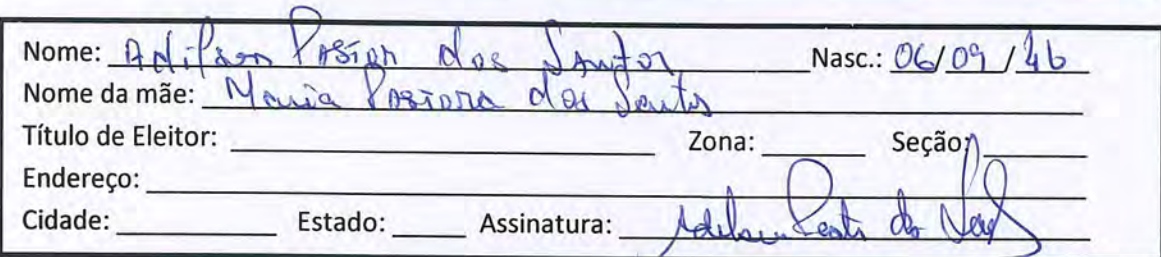 Nome: Adilson Pastor dos Santos Nasc.: 06/09/46
Nome da mãe: Maria Pastora dos Santos
Título de Eleitor: Zona: Seção:
Endereço:
Cidade: Estado: Assinatura: